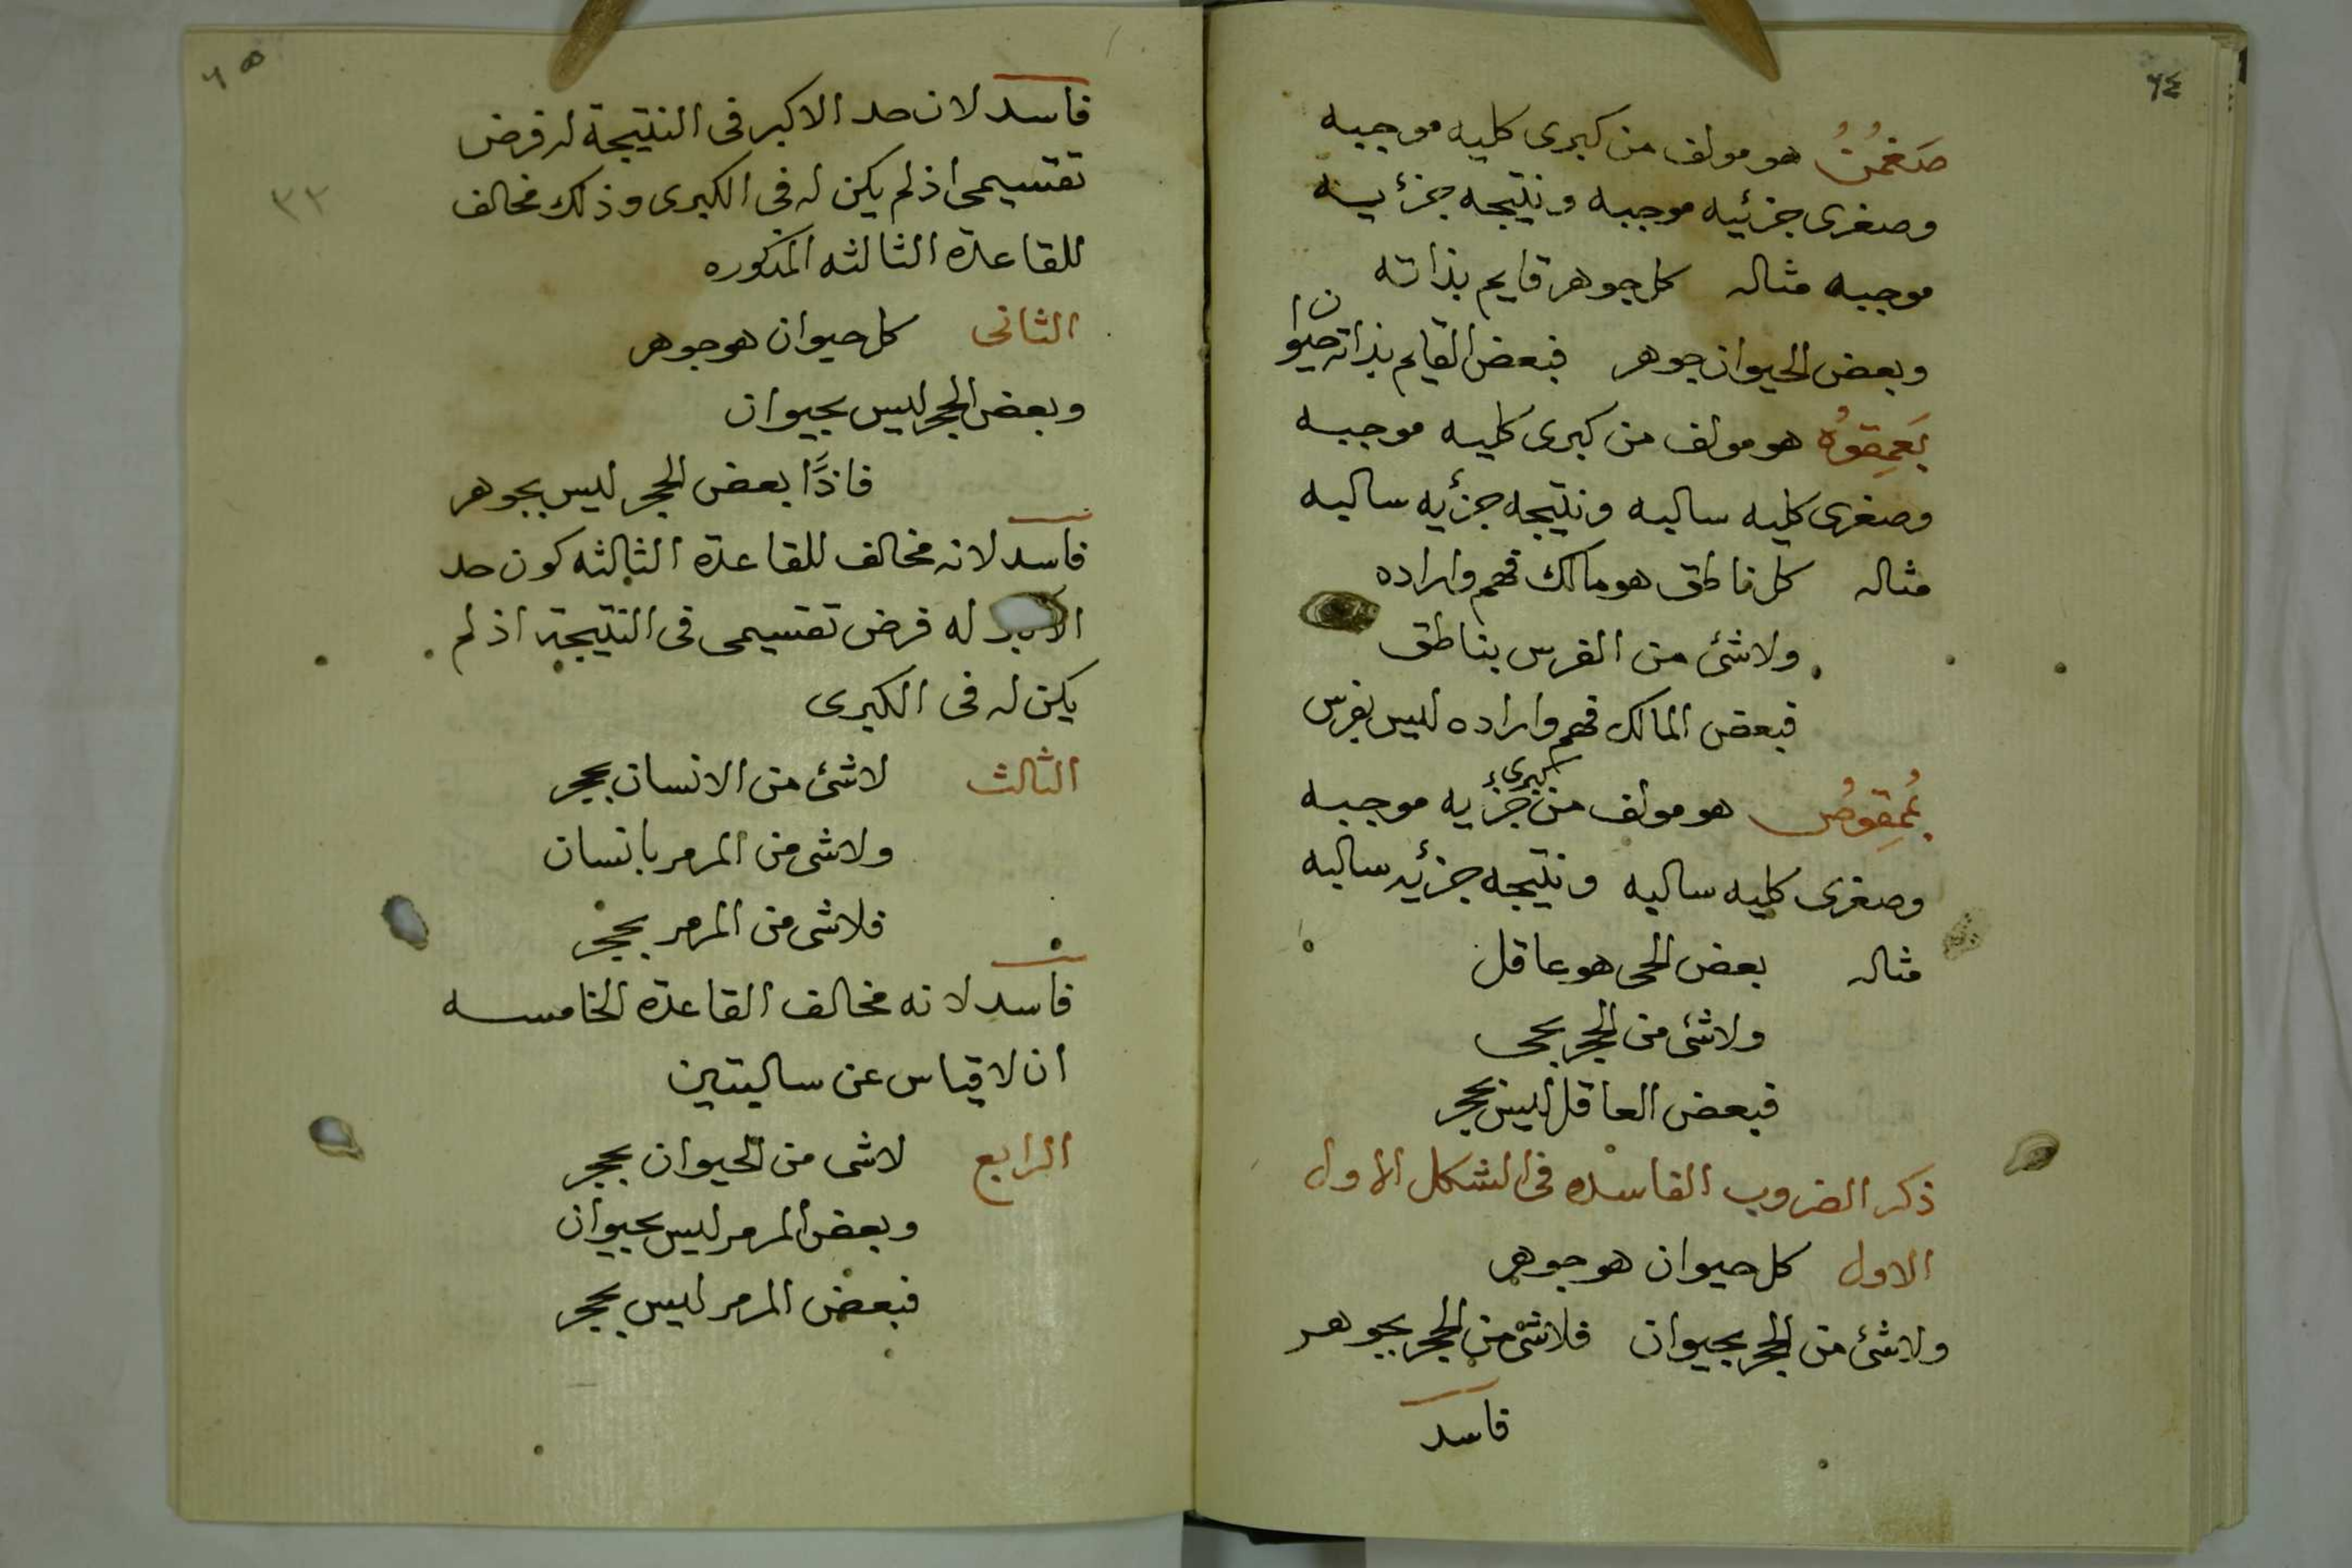 ٦٤
صَغمُتُ هو مولف من كبرى كليه موجبه
وصغرى جزئيه موجبه ونتيجه جزئيه
موجبه مثاله كل جوهر قايم بذاته
وبعض الحيوان جوهر فبعض القايم بذاته حيوان
بَعمِقوُه هو مولف من كبرى كليه موجبه
وصغرى كليه سالبه ونتيجه جزئيه سالبه
مثاله كل ناطق هو مالك فهم واراده
ولاشئ من الفرس بناطق
فبعض المالك فهم واراده ليس بفرس
بُمِقوصُ هو مولف من كبرى جزئيه موجبه
وصغرى كليه سالبه ونتيجه جزئيه سالبه
مثاله بعض الحى هو عاقل
ولاشئ من الحجر بحى
فبعض العاقل ليس بحجر
ذكر الضروب الفاسده فى الشكل الاول
الاول كل حيوان هو جوهر
ولاشئ من الحجر بحيوان فلاشئ من الحجر بجوهر
فاسد
٦٥
فاسد لان حد الاكبر فى النتيجة له فرض
تقسيمى اذ لم يكن له فى الكبرى وذلك مخالف
٣٢
للقاعدة الثالثه المذكوره
الثانى كل حيوان هو جوهر
وبعض الحجر ليس بحيوان
فاذًا بعض الحجر ليس بجوهر
فاسد لانه مخالف للقاعدة الثالثه كون حد
الاكبر له فرض تقسيمى فى النتيجة اذ لم
يكن له فى الكبرى
الثالث لاشئ من الانسان بحجر
ولاشى من المرمر بانسان
فلاشى من المرمر بحجر
فاسد لانه مخالف القاعدة الخامسه
ان لا قياس عن سالبتين
الرابع لاشى من الحيوان بحجر
وبعض المرمر ليس بحيوان
فبعض المرمر ليس بحجر